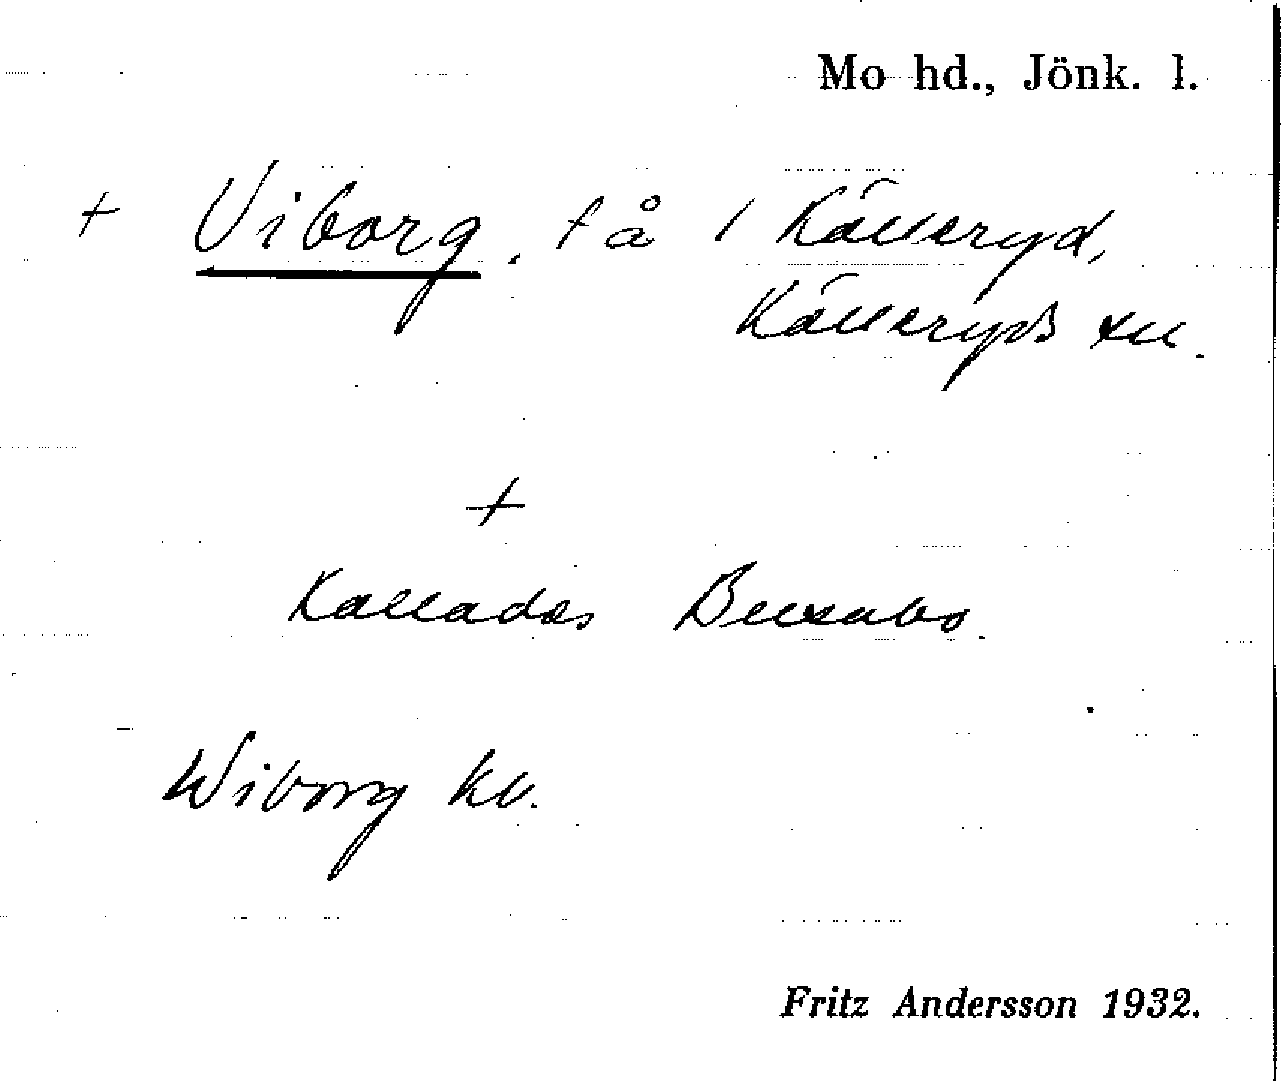 Mo hd., Jönk. l.
+ Viborg, få 1 Källeryd,
Källeryds sn.
+
Kallades
Wiborg kb.
Fritz Andersson 1932.